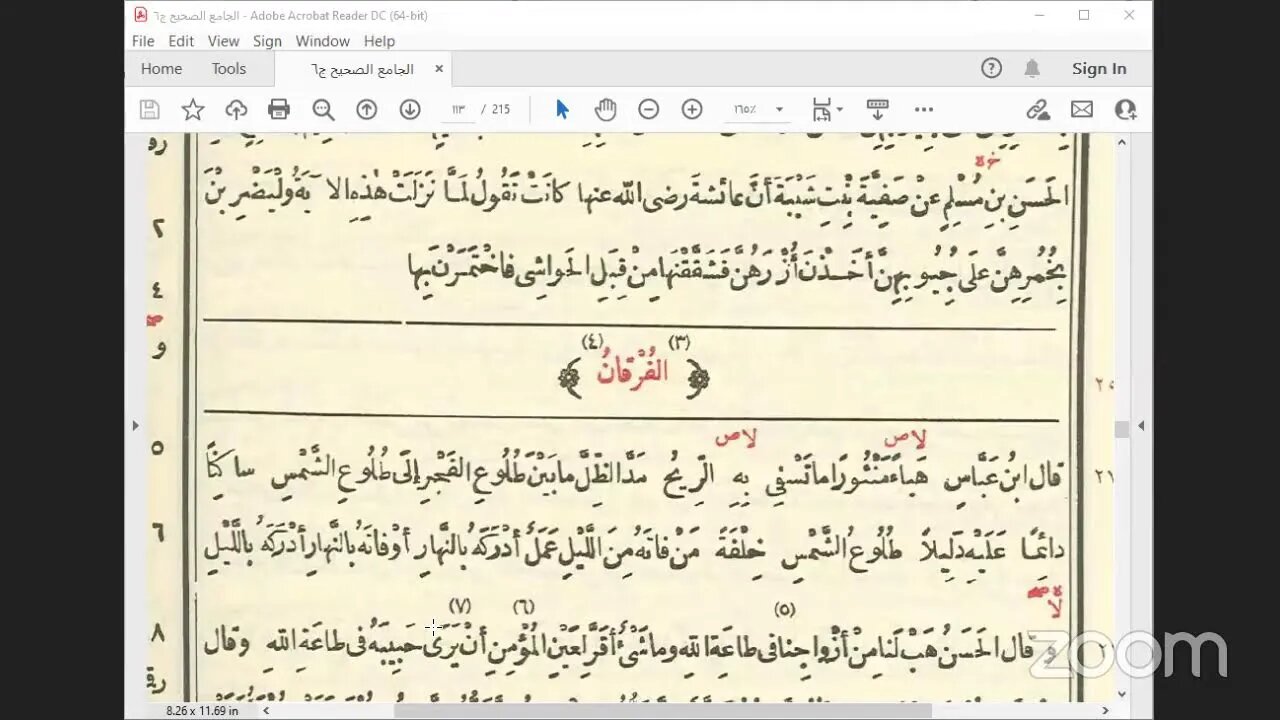 الجامع الصحيح ج٦ - Adobe Acrobat Reader DC (64-bit)
File Edit View Sign Window Help
Home Tools الجامع الصحيح ج٦ × Sign In
١١٣ / 215 ١٦٥٪
خوة
الحَسَنِ بنِ مُسْلِمٍ عنْ صَفِيَّةَ بِنْتِ شَيْبَةَ أنَّ عائشةَ رضى الله عنها كانَتْ تَقُولُ لمَّا نَزَلَتْ هٰذِهِ الآيَةُ ولْيَضْرِبْنَ
بِخُمُرِهِنَّ علَى جُيُوبِهِنَّ أخَذْنَ أُزْرَهُنَّ فَشَقَّقْنَها مِنْ قِبَلِ الحَواشِى فاخْتَمَرْنَ بِها
٢
٤
و
(٣) (٤)
الفُرْقانُ
٢٥
لا ص لا ص
٥
قال ابنُ عَبَّاسٍ هَباءً مَنْثُورًا ما تَسْفِى بِهِ الرِّيحُ مَدَّ الظِّلَّ ما بَيْنَ طُلُوعِ الفَجْرِ إلَى طُلُوعِ الشَّمْسِ ساكِنًا
٢١
٦
دائِمًا عَلَيْهِ دَلِيلاً طُلُوعُ الشَّمْسِ خِلْفَةً مَنْ فاتَهُ مِنَ اللَّيْلِ عَمَلٌ أدْرَكَهُ بالنَّهارِ أوْ فاتَهُ بالنَّهارِ أدْرَكَهُ باللَّيْلِ
لا
(٥) (٦) (٧)
٨
وقال الحَسَنُ هَبْ لَنا مِنْ أزْواجِنا فى طاعَةِ اللهِ وما شَىْءٌ أقَرَّ لِعَيْنِ المُؤْمِنِ أنْ يَرَى حَبِيبَهُ فى طاعَةِ اللهِ وقال
zoom
8.26 x 11.69 in